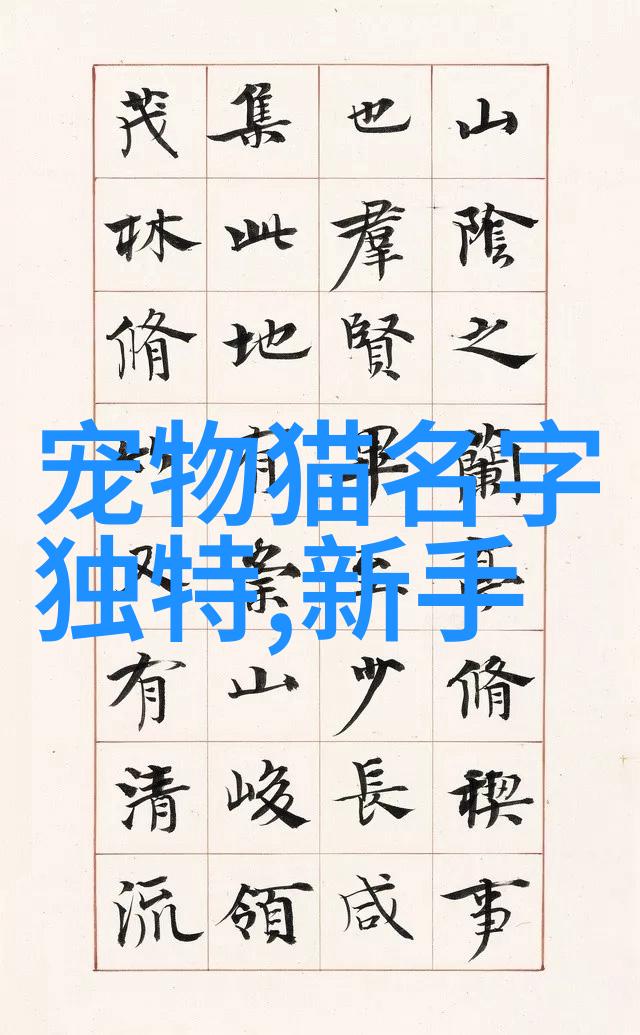 山陰之蘭亭脩禊事
也羣賢畢至少長咸
集此地有崇山峻領
茂林脩竹又有清流
宠物猫名字
独特,新手